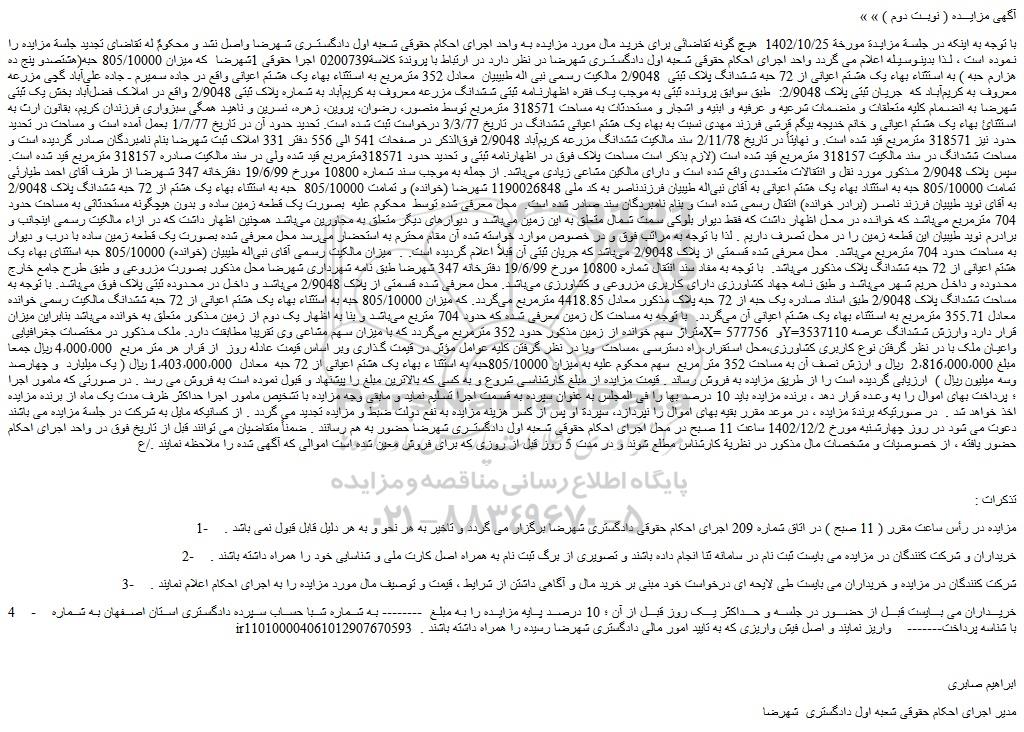 آگهی مزایـــده ( نوبــت دوم ) » »
با توجه به اینکه در جلسـهٔ مزایـدهٔ مورخهٔ 1402/10/25 هیچ گونه تقاضائی برای خریـد مال مورد مزایـده بـه واحد اجرای احکام حقوقی شـعبه اول دادگستــری شـهرضا واصل نشد و محکومٌ له تقاضای تجدید جلسهٔ مزایده را
نمـوده است ، لـذا بدینوسیـله اعلام می گردد واحد اجرای احکام حقوقی شعبه اول دادگستـری شهرضا در نظر دارد در ارتباط با پروندهٔ کلاسهٔ0200739 اجرا حقوقی 1شهرضا که میزان 805/10000 حبه(هشتصدو پنج ده
هزارم حبه ) به استثناء بهاء یک هشتم اعیانی از 72 حبه ششدانگ پلاک ثبتی 2/9048 مالکیت رسمی نبی اله طبیبیان معادل 352 مترمربع به استثناء بهاء یک هشتم اعیانی واقع در جاده سمیرم ـ جاده علی‌آباد گچی مزرعه
معروف به کریم‌آبـد که جریـان ثبتی پلاک 2/9048: طبق سوابق پرونـده ثبتی به موجب یـک فقره اظهارنـامه ثبتی ششدانگ مزرعه معروف به کریم‌آباد به شماره پلاک ثبتی 2/9048 واقع در املاـک فضل‌آباد بخش یک ثبتی
شهرضا به انضـمام کلیه متعلقات و منضـمات شـرعیه و عرفیه و ابنیه و اشجار و مستحدثات به مساحت 318571 مترمربع توسط منصور، رضوان، پروین، زهره، نسـرین و ناهیـد همگی سبزواری فرزندان کریم، بقانون ارث به
استثنائ بهاء یک هشتم اعیانی و خانم خدیجه بیگم قرشی فرزند مهدی نسبت به بهاء یک هشتم اعیانی ششدانگ در تاریخ 3/3/77 درخواست ثبت شده است. تحدید حدود آن در تاریخ 1/7/77 بعمل آمده است و مساحت در تحدید
حدود نیز 318571 مترمربع قید شده است. و نهایتاً در تاریخ 2/11/78 سند مالکیت ششدانگ مزرعه کریم‌آباد 2/9048 فوق‌الذکر در صفحات 541 الی 556 دفتر 331 املاک ثبت شهرضا بنام نامبردگان صادر گردیده است و
مساحت ششدانگ در سند مالکیت 318157 مترمربع قید شده است (لازم بذکر است مساحت پلاک فوق در اظهارنامه ثبتی و تحدید حدود 318571مترمربع قید شده ولی در سند مالکیت صادره 318157 مترمربع قید شده است.
سپس پلاک 2/9048 مـذکور مورد نقل و انتقالات متعـددی واقع شده است و دارای مالکین مشاعی زیادی می‌باشد. از جمله به موجب سـند شـماره 10800 مورخ 19/6/99 دفترخانه 347 شهـرضا از طرف آقای احمد طیارئی
تمامت 805/10000 حبه به استثناد بهاء یک هشتم اعیانی به آقای نبی‌اله طبیبیان فرزندناصر به کد ملی 1190026848 شهرضا (خوانده) و تمامت 805/10000 حبه به استثناء بهاء یک هشتم از 72 حبه ششدانگ پلاک 2/9048
به آقای نوید طبیبیان فرزند ناصر (برادر خوانده) انتقال رسمی شده است و بنام نامبردگان سند صادر شده است. محل معرفی شده توسط محکوم علیه بصورت یک قطعه زمین ساده و بدون هیچگونه مستحدثاتی به مساحت حدود
704 مترمربع می‌باشـد که خوانـده در محـل اظهار داشت که فقط دیوار بلوکی سـمت شـمال متعلق به این زمین می‌باشـد و دیوارهای دیگر متعلق به مجاورین می‌باشـد همچنین اظهار داشت که در ازاء مالکیت رسمی اینجانب و
برادرم نوید طبیبیان این قطعه زمین را در محل تصرف داریم . لذا با توجه به مراتب فوق و در خصوص موارد خواسته شده آن مقام محترم به استحضار می‌رسد محل معرفی شده بصورت یک قطعه زمین ساده با درب و دیوار
به مساحت حدود 704 مترمربع می‌باشد. محل معرفی شده قسمتی از پلاک 2/9048 می‌باشد که جریان ثبتی آن قبلاً اعلام گردیده است. . میزان مالکیت رسمی آقای نبی‌اله طبیبیان (خوانده) 805/10000 حبه استثنای بهاء یک
هشتم اعیانی از 72 حبه ششدانگ پلاک مذکور می‌باشد. با توجه به مفاد سند انتقال شماره 10800 مورخ 19/6/99 دفترخانه 347 شهرضا طبق نامه شهرداری شهرضا محل مذکور بصورت مزروعی و طبق طرح جامع خارج
محـدوده و داخـل حریم شـهر می‌باشـد و طبق نـامه جهاد کشاورزی دارای کاربری مزروعی و کشاورزی می‌باشد. محل معرفی شـده قسـمتی از پلاک 2/9048 می‌باشـد و داخـل در محـدوده ثبتی پلاک فوق می‌باشـد. با توجه به
مساحت ششدانگ پلاک 2/9048 طبق اسناد صادره یک حبه از 72 حبه پلاک مذکور معادل 4418.85 مترمربع می‌گردد. که میزان 805/10000 حبه به استثناء بهاء یک هشتم اعیانی از 72 حبه ششدانگ مالکیت رسمی خوانده
معادل 355.71 مترمربع به استثناء بهاء یک هشتم اعیانی آن می‌گردد. با توجه به مساحت کل زمین معرفی شده که حدود 704 متربع می‌باشد و بنا به اظهار یک دوم از زمین مذکور متعلق به خوانده می‌باشد بنابراین میزان
قرار دارد وارزش ششدانگ عرصه Y=3537110و X= 577756متراژ سهم خوانده از زمین مذکور حدود 352 مترمربع می‌گردد که با میزان سهم مشاعی وی تقریبا مطابقت دارد. ملک مذکور در مختصات جغرافیایی
واعیان ملک با در نظر گرفتن نوع کاربری کشاورزی،محل استقرار،راه دسترسی ،مساحت وبا در نظر گرفتن کلیه عوامل مؤثر در قیمت گذاری وبر اساس قیمت عادله روز از قرار هر متر مربع 4،000،000 ریال جمعا
مبلغ 2،816،000،000 ریال و ارزش نصف آن به مساحت 352 متر مربع سهم محکوم علیه به میزان 805/10000حبه به استثناء بهاء یک هشتم اعیانی از 72 حبه معادل 1،403،000،000 ریال ( یک میلیارد و چهارصد
وسه میلیون ریال ) ارزیابی گردیده است را از طریق مزایده به فروش رساند . قیمت مزایده از مبلغ کارشناسی شروع و به کسی که بالاترین مبلغ را پیشنهاد و قبول نموده است به فروش می رسد . در صورتی که مامور اجرا
؛ پرداخت بهای اموال را به وعده قرار دهد ، برنده مزایده باید 10 درصد بها را فی المجلس به عنوان سپرده به قسمت اجرا تسلیم نماید، و مابقی وجه مزایده با تشخیص مامور اجرا حداکثر ظرف مدت یک ماه از برنده مزایده
اخذ خواهد شد . در صورتیکه برندهٔ مزایده ، در موعد مقرر بقیه بهای اموال را نپردازد، سپردهٔ او پس از کسر هزینه مزایده به نفع دولت ضبط و مزایده تجدید می گردد . از کسانیکه مایل به شرکت در جلسهٔ مزایده می باشند
دعوت می شود در روز چهارشنبه مورخ 1402/12/2 ساعت 11 صبح در محل اجرای احکام حقوقی شعبه اول دادگستـری شهرضا حضور به هم رسانند . ضمناً متقاضیان می توانند قبل از تاریخ فوق در واحد اجرای احکام
حضور یافته ، از خصوصیات و مشخصات مال مذکور در نظریهٔ کارشناس مطلع شوند و در مدت 5 روز قبل از روزی که برای فروش معین شده است اموالی که آگهی شده را ملاحظه نمایند ./ع
پایگاه اطلاع رسانی مناقصه و مزایده
تذکرات :
۰۲۱-۸۸۳۴۹۶۷۰-۵
مزایده در رأس ساعت مقرر ( 11 صبح ) در اتاق شماره 209 اجرای احکام حقوقی دادگستری شهرضا برگزار می گردد و تاخیر به هر نحو و به هر دلیل قابل قبول نمی باشد . -1
خریداران و شرکت کنندگان در مزایده می بایست ثبت نام در سامانه ثنا انجام داده باشند و تصویری از برگ ثبت نام به همراه اصل کارت ملی و شناسایی خود را همراه داشته باشند . -2
شرکت کنندگان در مزایده و خریداران می بایست طی لایحه ای درخواست خود مبنی بر خرید مال و آگاهی داشتن از شرایط ، قیمت و توصیف مال مورد مزایده را به اجرای احکام اعلام نمایند . -3
خریــداران می بــایست قبــل از حضــور در جلســه و حــداکثر یــک روز قبــل از آن ؛ 10 درصــد پــایه مزایــده را بــه مبلــغ -------- بــه شــماره شــبا حســاب ســپرده دادگســتری اســتان اصــفهان بــه شــماره - 4
با شناسه پرداخت------- واریز نمایند و اصل فیش واریزی که به تایید امور مالی دادگستری شهرضا رسیده را همراه داشته باشند . ir110100004061012907670593
ابراهیم صابری
مدیر اجرای احکام حقوقی شعبه اول دادگستری شهرضا